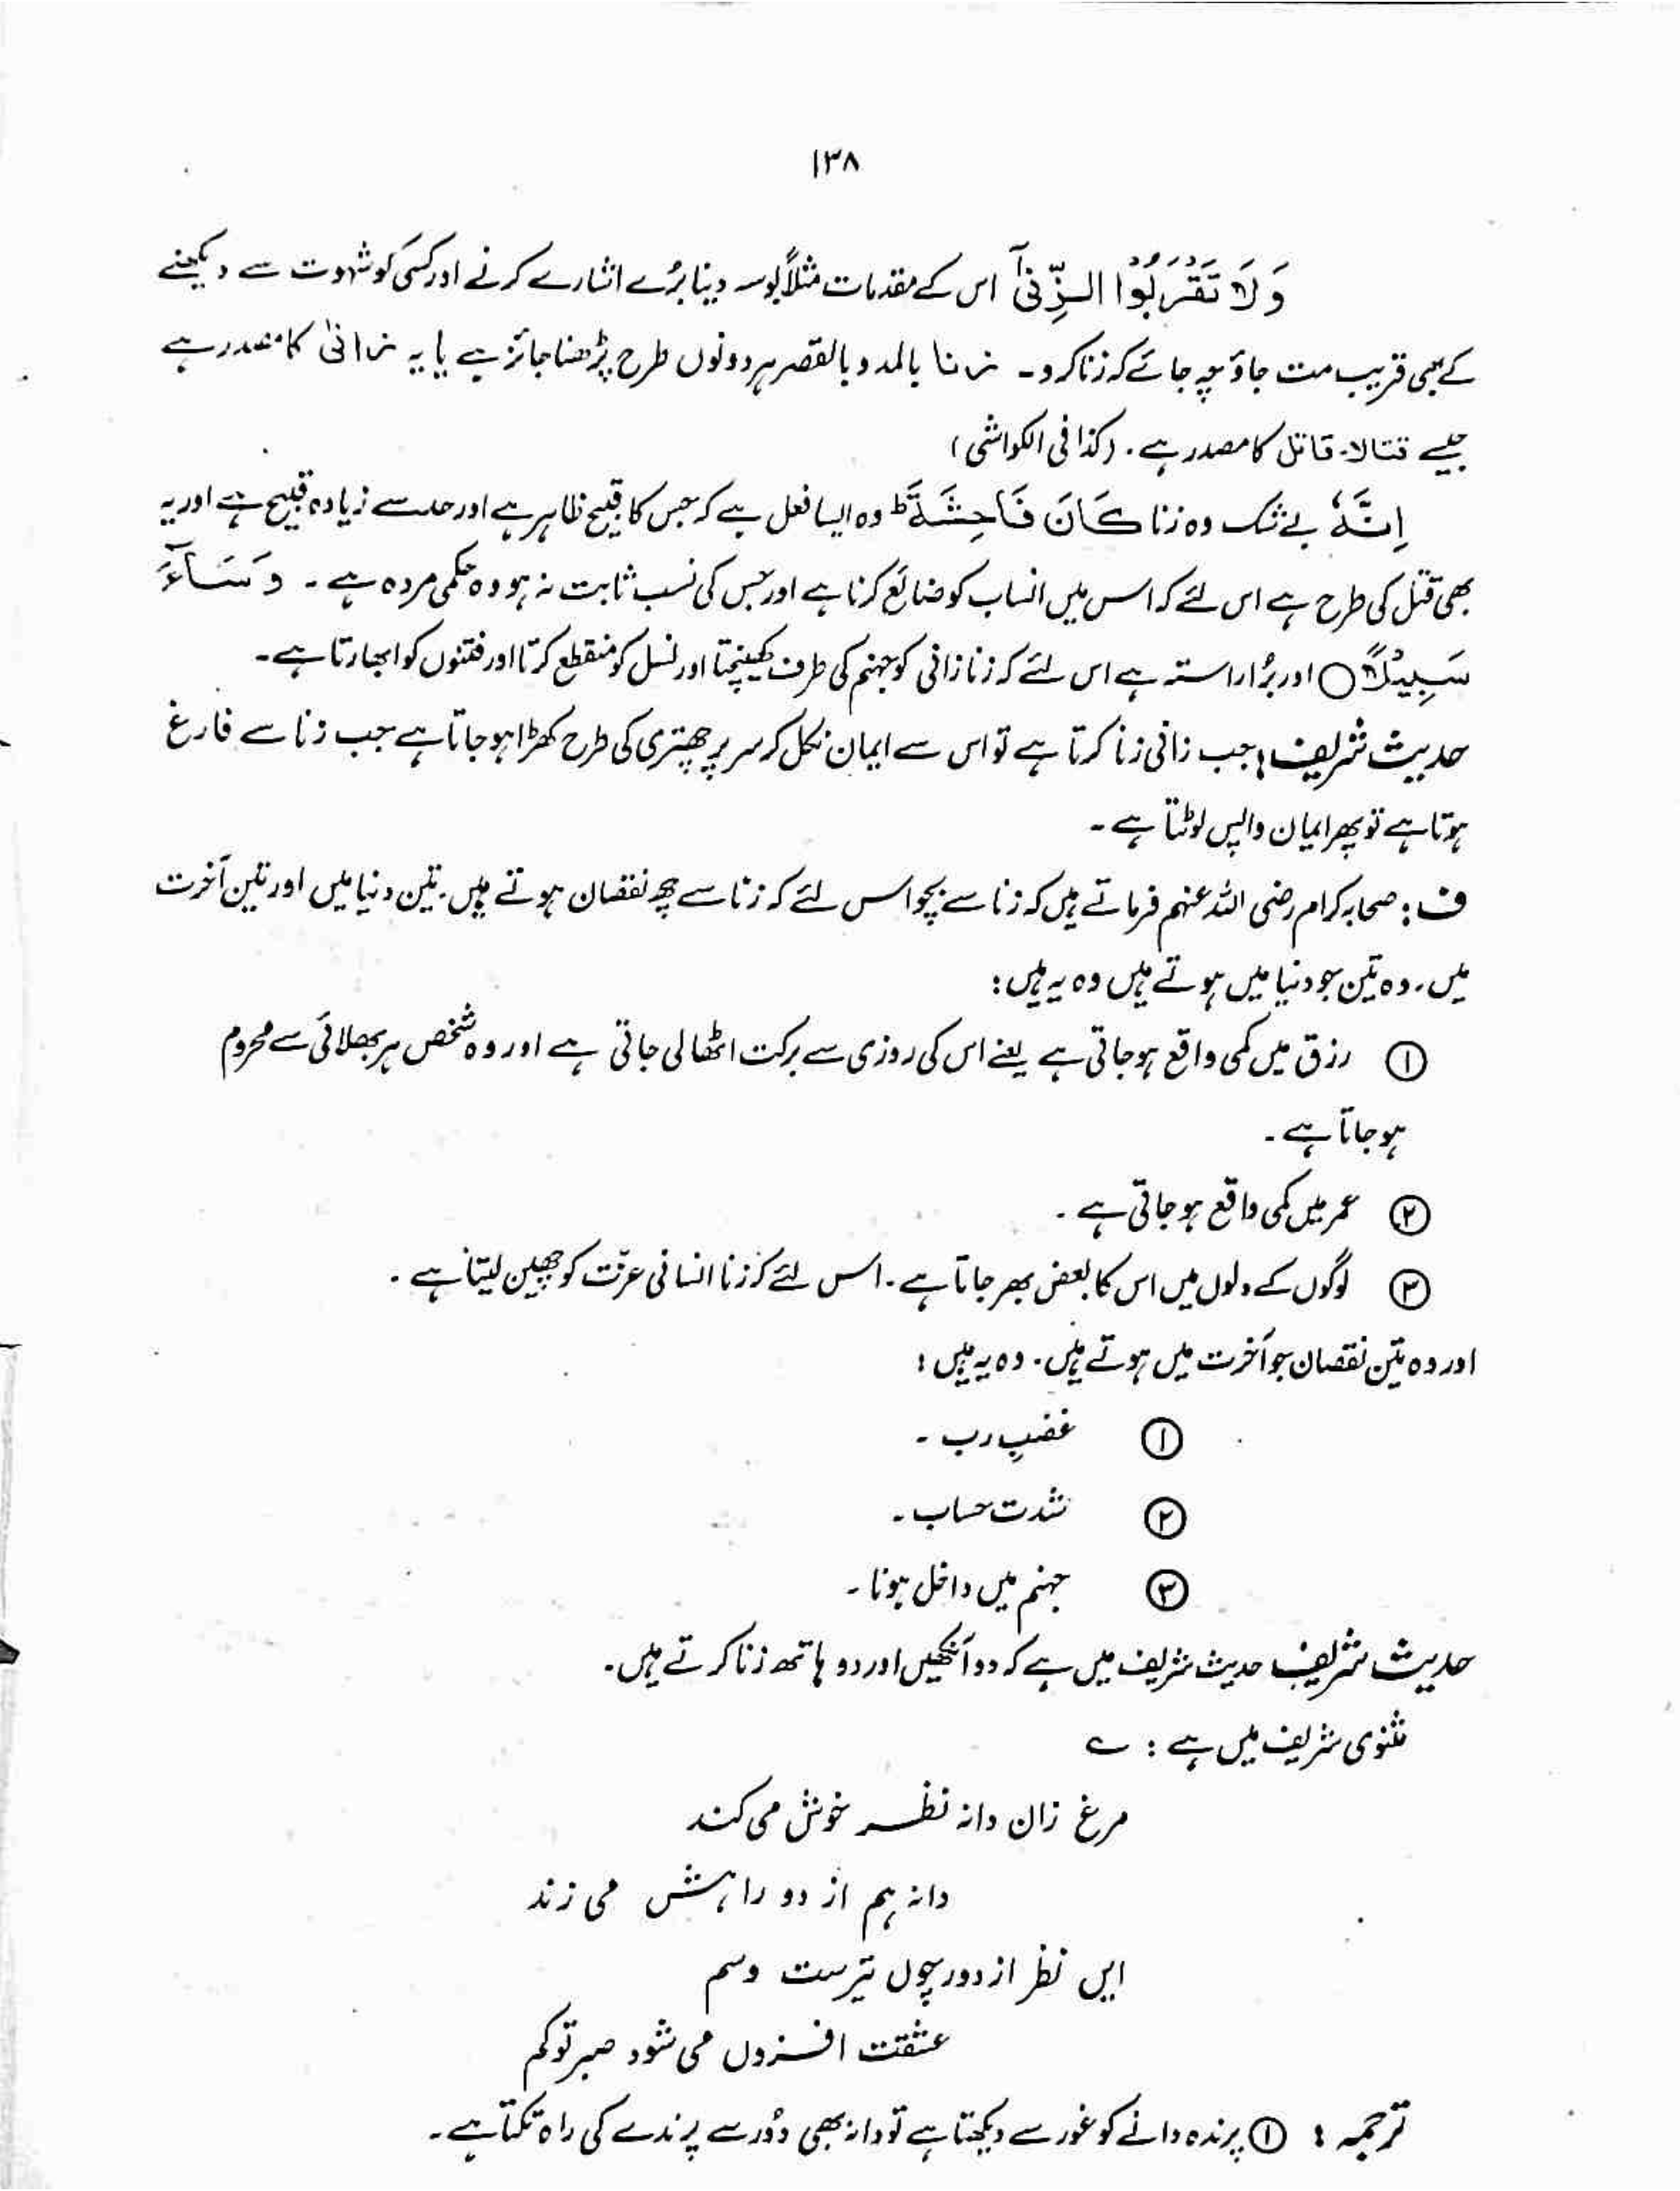 ۱۳۸
وَلَا تَقْرَبُوا الزِّنٰۤى اس کے مقدمات مثلاً بوسہ دینا بُرے اشارے کرنے اور کسی کو شہوت سے دیکھنے
کے بھی قریب مت جاؤ چہ جائے کہ زنا کرو۔ زنا بالمد و بالقصر ہر دونوں طرح پڑھنا جائز ہے یا یہ زانیٰ کا مصدر ہے
جیسے قتالا۔ قاتل کا مصدر ہے۔ (کذا فی الکواشی)
اِنَّهٗ بے شک وہ زنا كَانَ فَاحِشَةً ط وہ ایسا فعل ہے کہ جس کا قبیح ظاہر ہے اور حد سے زیادہ قبیح ہے اور یہ
بھی قتل کی طرح ہے اس لئے کہ اس میں انساب کو ضائع کرنا ہے اور جس کی نسب ثابت نہ ہو وہ حکمی مردہ ہے ۔ وَسَآءَ
سَبِيْلًا ○ اور بُرا راستہ ہے اس لئے کہ زنا زانی کو جہنم کی طرف کھینچتا اور نسل کو منقطع کرتا اور فتنوں کو ابھارتا ہے۔
حدیث شریف : جب زانی زنا کرتا ہے تو اس سے ایمان نکل کر سر پر چھتری کی طرح کھڑا ہو جاتا ہے جب زنا سے فارغ
ہوتا ہے تو پھر ایمان واپس لوٹتا ہے ۔
ف : صحابہ کرام رضی اللہ عنہم فرماتے ہیں کہ زنا سے بچو اس لئے کہ زنا سے چھ نقصان ہوتے ہیں۔ تین دنیا میں اور تین آخرت
میں۔ وہ تین جو دنیا میں ہوتے ہیں وہ یہ ہیں :
① رزق میں کمی واقع ہو جاتی ہے یعنے اس کی روزی سے برکت اٹھا لی جاتی ہے اور وہ شخص ہر بھلائی سے محروم
ہو جاتا ہے ۔
② عمر میں کمی واقع ہو جاتی ہے ۔
③ لوگوں کے دلوں میں اس کا بغض بھر جاتا ہے ۔ اس لئے کہ زنا انسانی عزّت کو چھین لیتا ہے ۔
اور وہ تین نقصان جو آخرت میں ہوتے ہیں۔ وہ یہ ہیں :
① غضبِ رب ۔
② شدت حساب ۔
③ جہنم میں داخل ہونا ۔
حدیث شریف حدیث شریف میں ہے کہ دو آنکھیں اور دو ہاتھ زنا کرتے ہیں۔
مثنوی شریف میں ہے : ے
مرغ زان دانہ نظر خوش می کند
دانہ ہم از دور راہش می زند
ایں نظر از دور چوں تیرست وسم
عشقت افزوں می شود صبر تو کم
ترجمہ : ① پرندہ دانے کو غور سے دیکھتا ہے تو دانہ بھی دُور سے پرندے کی راہ تکتا ہے ۔